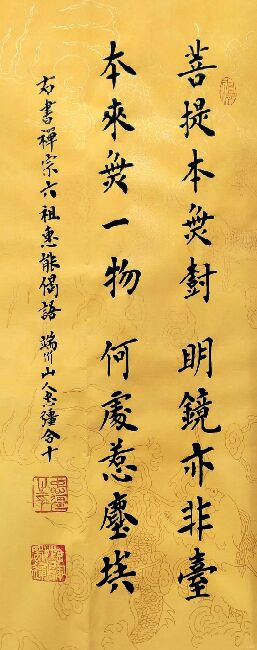 菩提本無樹 明鏡亦非臺
本來無一物 何處惹塵埃
右書禪宗六祖惠能偈語 端州山人忠疆合十